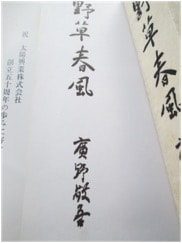 野草春風
廣野敬吾
野草春風
祝 太陽興業株式会社
創立五十周年の歩みに寄せ